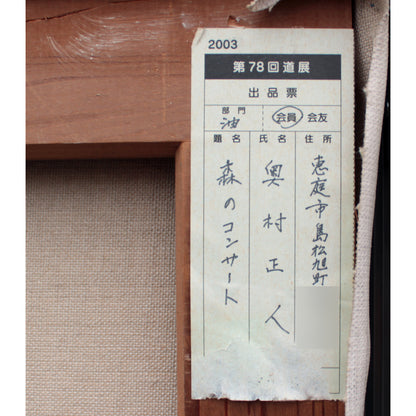 2003
第78回道展
出品票
部門
油
会員 会友
題名 氏名 住所
恵庭市島松旭町
奥村正人
森のコンサート